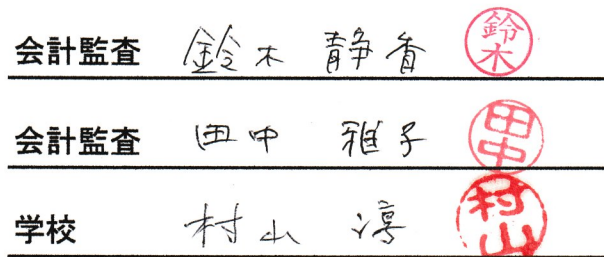 会計監査 鈴木 静香 鈴木
会計監査 田中 雅子 田中
学校 村山 淳 村山